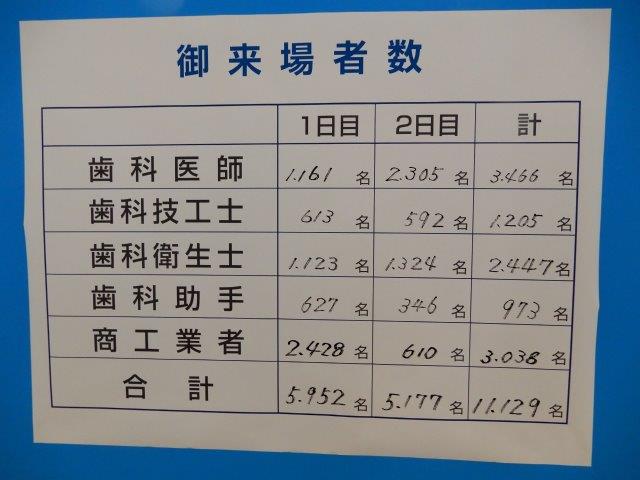 御来場者数
1日目 2日目 計
歯科医師 1.161名 2.305名 3.466名
歯科技工士 613名 592名 1.205名
歯科衛生士 1.123名 1.324名 2.447名
歯科助手 627名 346名 973名
商工業者 2.428名 610名 3.038名
合計 5.952名 5.177名 11.129名